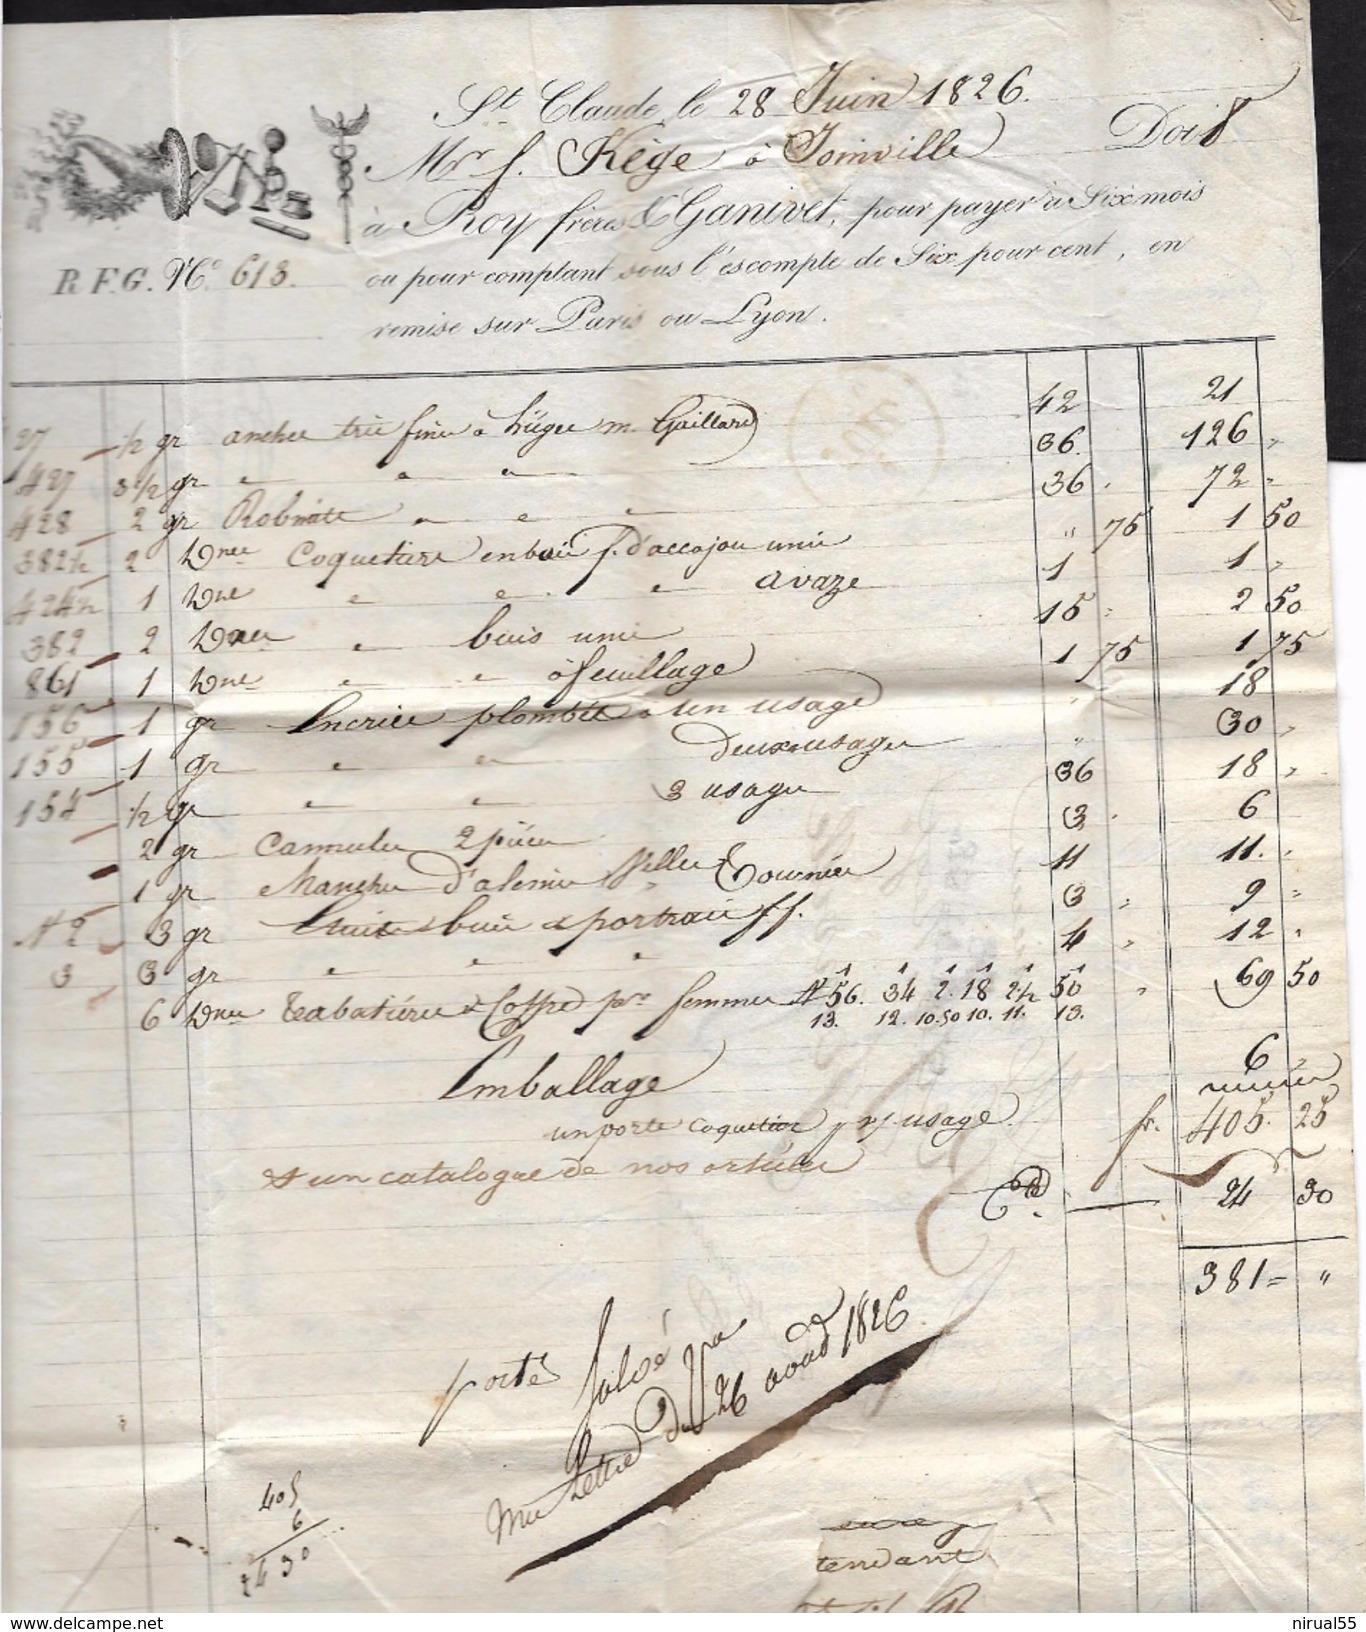 St. Claude, le 28 Juin 1826.
Mr. f. Kège à Joinville Doit
à Roy frères & Ganivet, pour payer à Six mois
ou pour comptant sous l'escompte de Six pour cent, en
remise sur Paris ou Lyon.
R.F.G. No. 613.
27 1/2 gr anches très fines à m. Gaillard 42 21
427 3 1/2 gr " " " 36. 126 "
428 2 gr " " " 36 . 72 "
382 1/2 2 Dnes Coquetiers en bois f. d'accajou unis " 75 1 50
424 1/2 1 Dne " " " avaze 1 1 "
382 2 Dnes " buis unis 15 " 2 50
861 1 Dne " " à feuillage 1 75 1 75
156 1 gr Encriers plombés à un usage " 18
155 1 gr " " deux usages " 30 "
154 1/2 gr " " 3 usages 36 18 "
2 gr Cannules 2 pièces 3 . 6
1 gr Manches d'alenes Selliers Tournées 11 11. "
N 2 3 gr buis à portrais ff. 3 " 9 "
3 3 gr " " " 4 " 12 "
6 Dnes Tabatières & Coffre pr. femmes N 56. 34 2. 18 2 1/2 50 " 69 50
13. 12. 10.50 10. 11. 13.
Emballage 6
un porte coquetier usage. fr. 405. 25
& un catalogue de nos articles
24 30
381 = "
porté Solvé Pa
ma Lettre du 26 aout 1826
405
6
24 30
tendant
nirual55